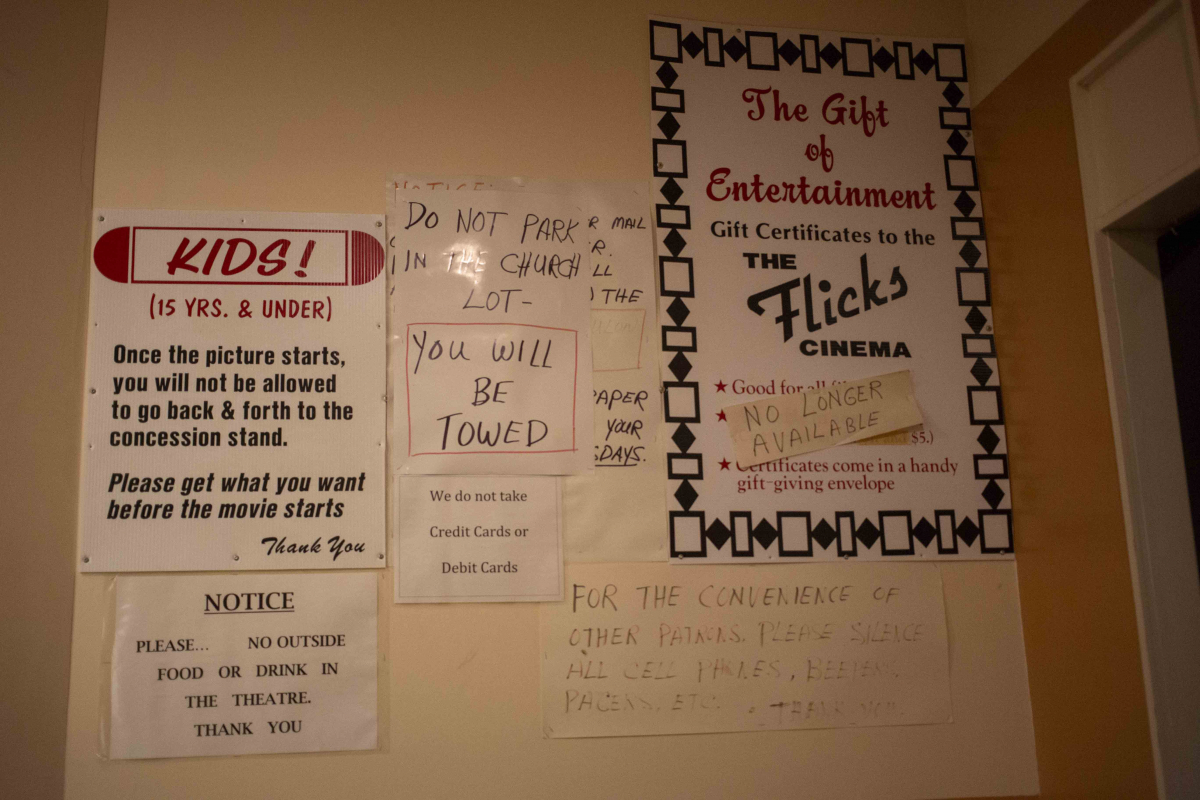 KIDS!
(15 YRS. & UNDER)
Once the picture starts,
you will not be allowed
to go back & forth to the
concession stand.
Please get what you want
before the movie starts
Thank You
NOTICE
PLEASE... NO OUTSIDE
FOOD OR DRINK IN
THE THEATRE.
THANK YOU
NOTICE
DO NOT PARK
IN THE CHURCH
LOT-
YOU WILL
BE
TOWED
R MAIL
R.
LL
THE
PAPER
YOUR
SDAYS.
We do not take
Credit Cards or
Debit Cards
The Gift
of
Entertainment
Gift Certificates to the
THE
Flicks
CINEMA
★ Good for all
NO LONGER
AVAILABLE
★
$5.)
★ Certificates come in a handy
gift-giving envelope
FOR THE CONVENIENCE OF
OTHER PATRONS, PLEASE SILENCE
ALL CELL PHONES, BEEPERS,
PAGERS, ETC. THANK YOU